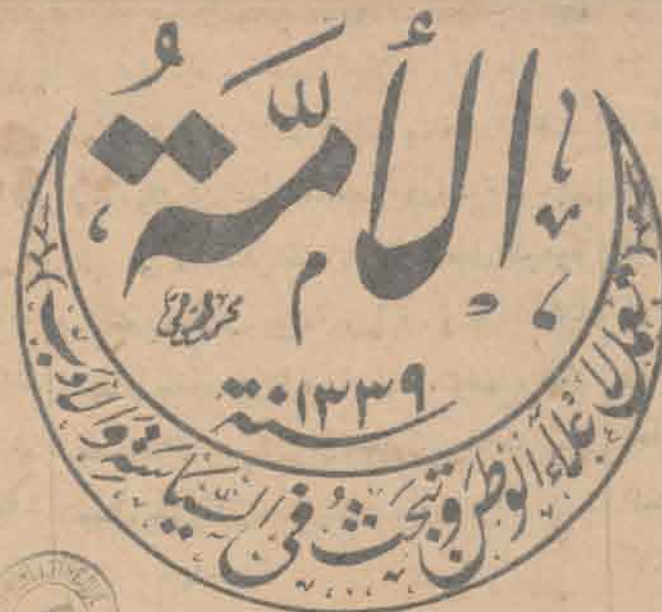 الأمّةُ
سنة ١٣٣٩
تعمل لإعلاء الوطن وتبحث في السياسة والآداب